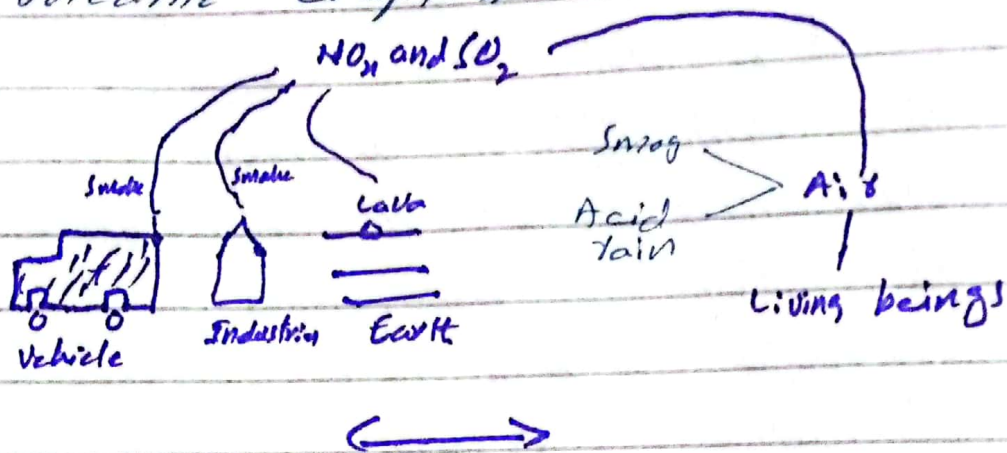 NOx and SO2
Smoke
Smoke
Lava
Smog
Acid
rain
Air
Living beings
Vehicle
Industries
Earth